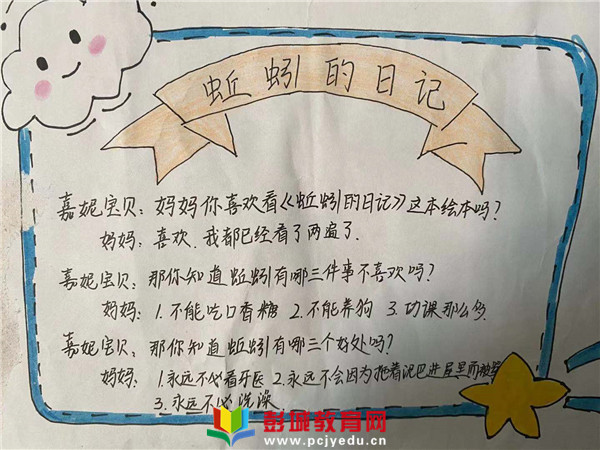 蚯蚓的日记
嘉妮宝贝：妈妈你喜欢看《蚯蚓的日记》这本绘本吗？
妈妈：喜欢.我都已经看了两遍了.
嘉妮宝贝：那你知道蚯蚓有哪三件事不喜欢吗？
妈妈：1.不能吃口香糖 2.不能养狗 3.功课那么多.
嘉妮宝贝：那你知道蚯蚓有哪三个好处吗？
妈妈：1.永远不必看牙医 2.永远不会因为拖着泥巴进屋里而被
3.永远不必洗澡.
彭城教育网
www.pcjyedu.cn